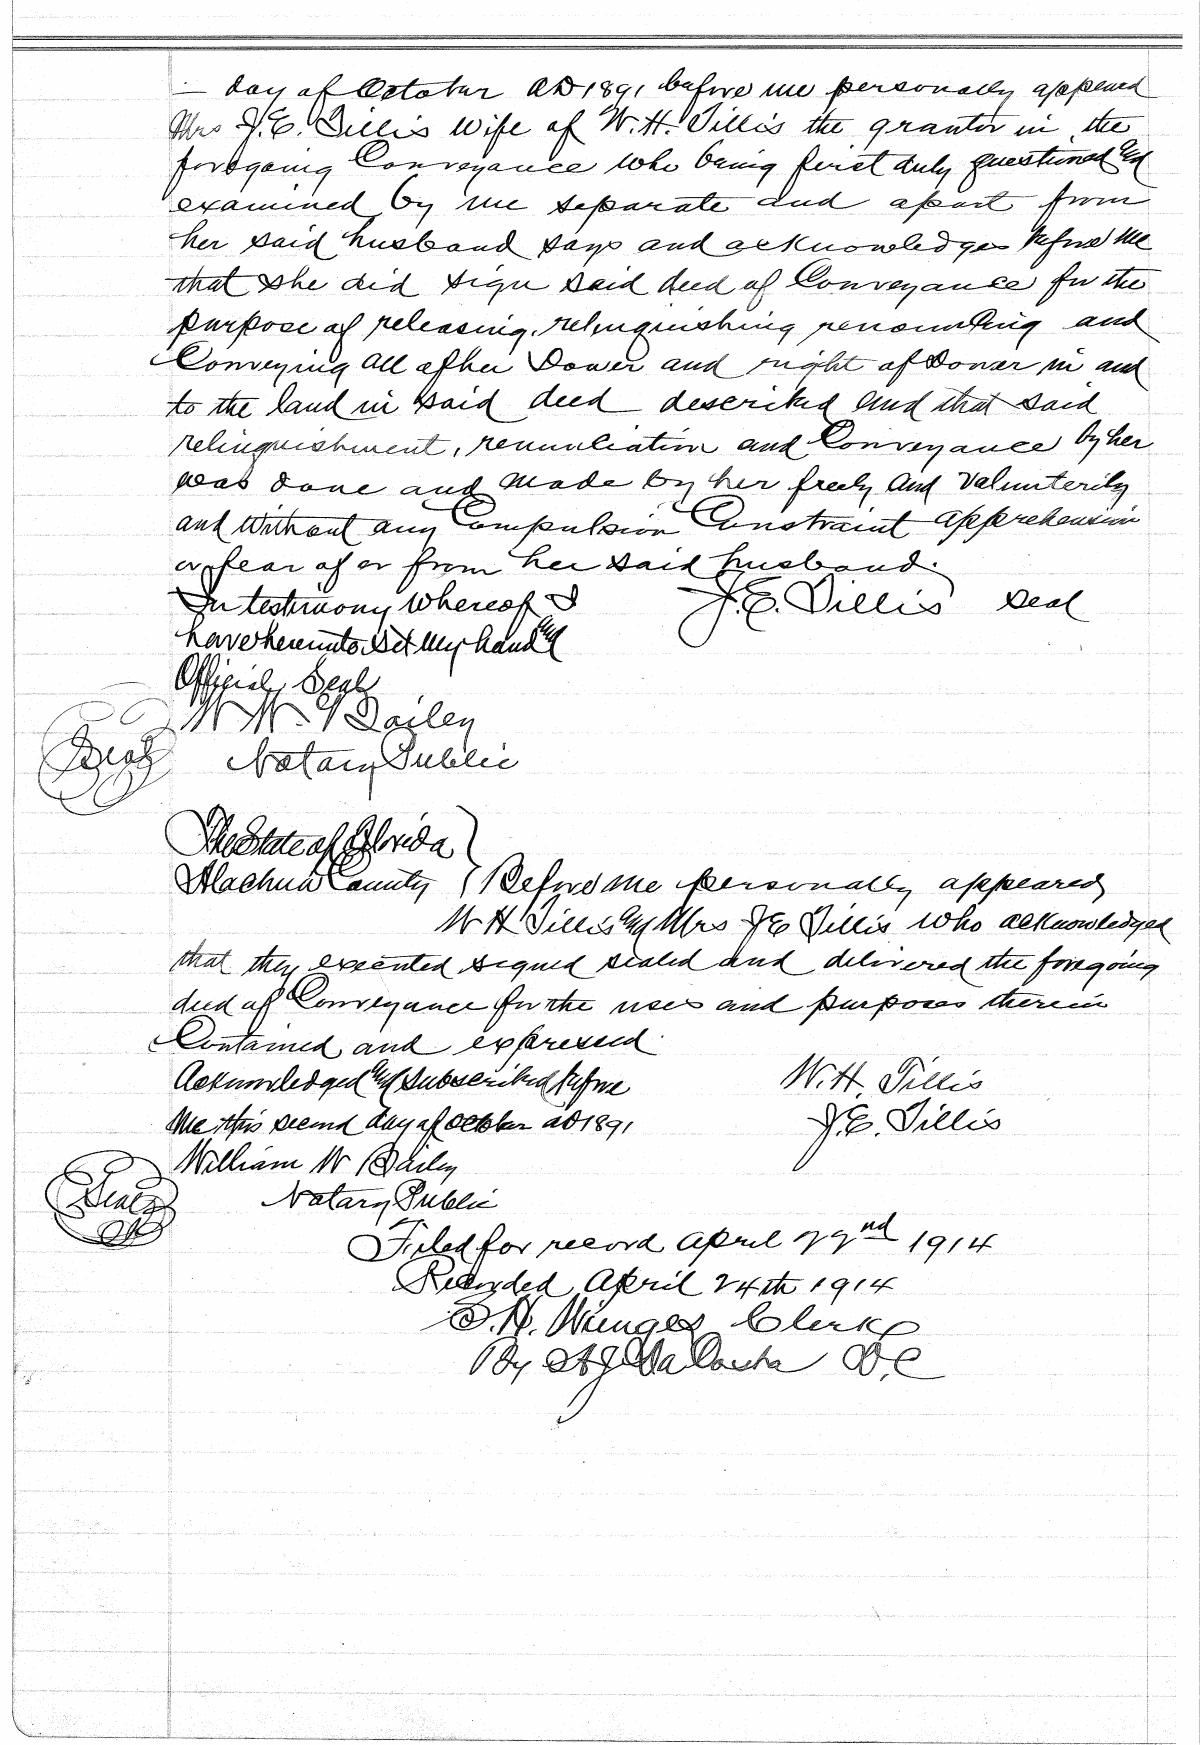 — day of October AD 1891 before me personally appeared
Mrs J.E. Tillis wife of W.H. Tillis the grantor in the
foregoing Conveyance who being first duly questioned and
examined by me separate and apart from
her said husband says and acknowledges before me
that she did sign said deed of Conveyance for the
purpose of releasing, relinquishing renouncing and
Conveying all of her Dower and right of Dower in and
to the land in said deed described and that said
relinquishment, renunciation and Conveyance by her
was done and made by her freely and valunterily
and without any Compulsion Constraint apprehension
or fear of or from her said husband.
In testimony whereof I J.E. Tillis seal
have hereunto set my hand and
Official Seal
W W Bailey
Seal Notary Public
The State of Florida
Alachua County Before me personally appeared
W H Tillis and Mrs J E Tillis who acknowledged
that they executed signed sealed and delivered the foregoing
deed of Conveyance for the uses and purposes therein
Contained and expressed.
Acknowledged and subscribed before W.H. Tillis
me this second day of October AD 1891 J.E. Tillis
William W Bailey
Seal Notary Public
Filed for record April 22nd 1914
Recorded April 24th 1914
S.H. Wienges Clerk
By DaCosta D.C